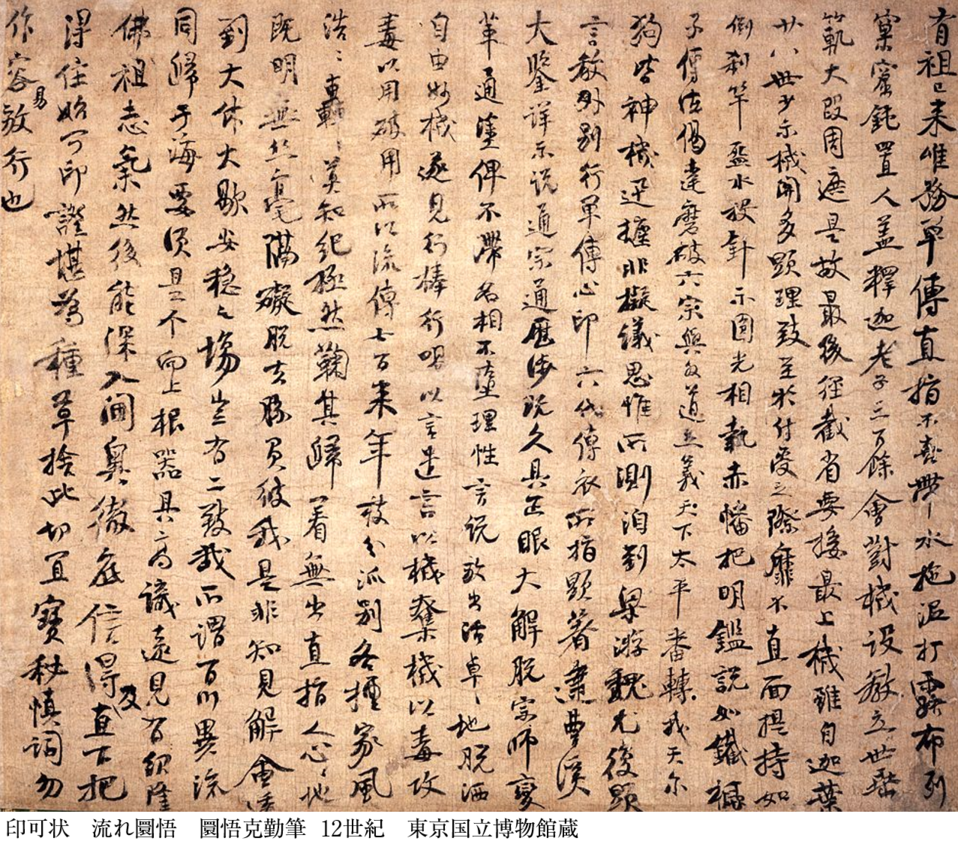 有祖已来唯務單傳直指不喜帶水拖泥打露布列
窠窟鈍置人盖釋迦老子三百餘會對機設教立世垂
範大段周遮是故最後徑截省要接最上機雖自迦葉
廿八世少示機關多顯理致至於付受之際靡不直面提持如
倒刹竿盋水投針示圓光相執赤幡把明鑑説如鐵橛
子傳法偈達磨破六宗與外道立義天下太平番轉我天尓
狗皆神機迅捷非擬議思惟所測洎到梁游魏尤復顯
言教外別行單傳心印六代傳衣所指顯著逮曹溪
大鑒詳示説通宗通歷涉既久具正眼大解脱宗師變
革通塗俾不滯名相不墮理性言説放出活卓々地脱洒
自由妙機遂見行棒行喝以言遣言以機奪機以毒攻
毒以用破用所以流傳七百来年枝分派別各擅家風
浩々轟々莫知紀極然鞠其歸著無出直指人心々地
既明無絲毫隔礙脱去勝負彼我是非知見解會透
到大休大歇安穏之場豈有二致哉所謂百川異流
同歸于海要須是个向上根器具高識遠見有紹隆
佛祖志氣然後能深入閫奥徹底信得及直下把
得住始可印證堪為種草捨此切宜寶秘慎詞勿
作容易放行也
印可状　流れ圜悟　圜悟克勤筆　12世紀　東京国立博物館蔵